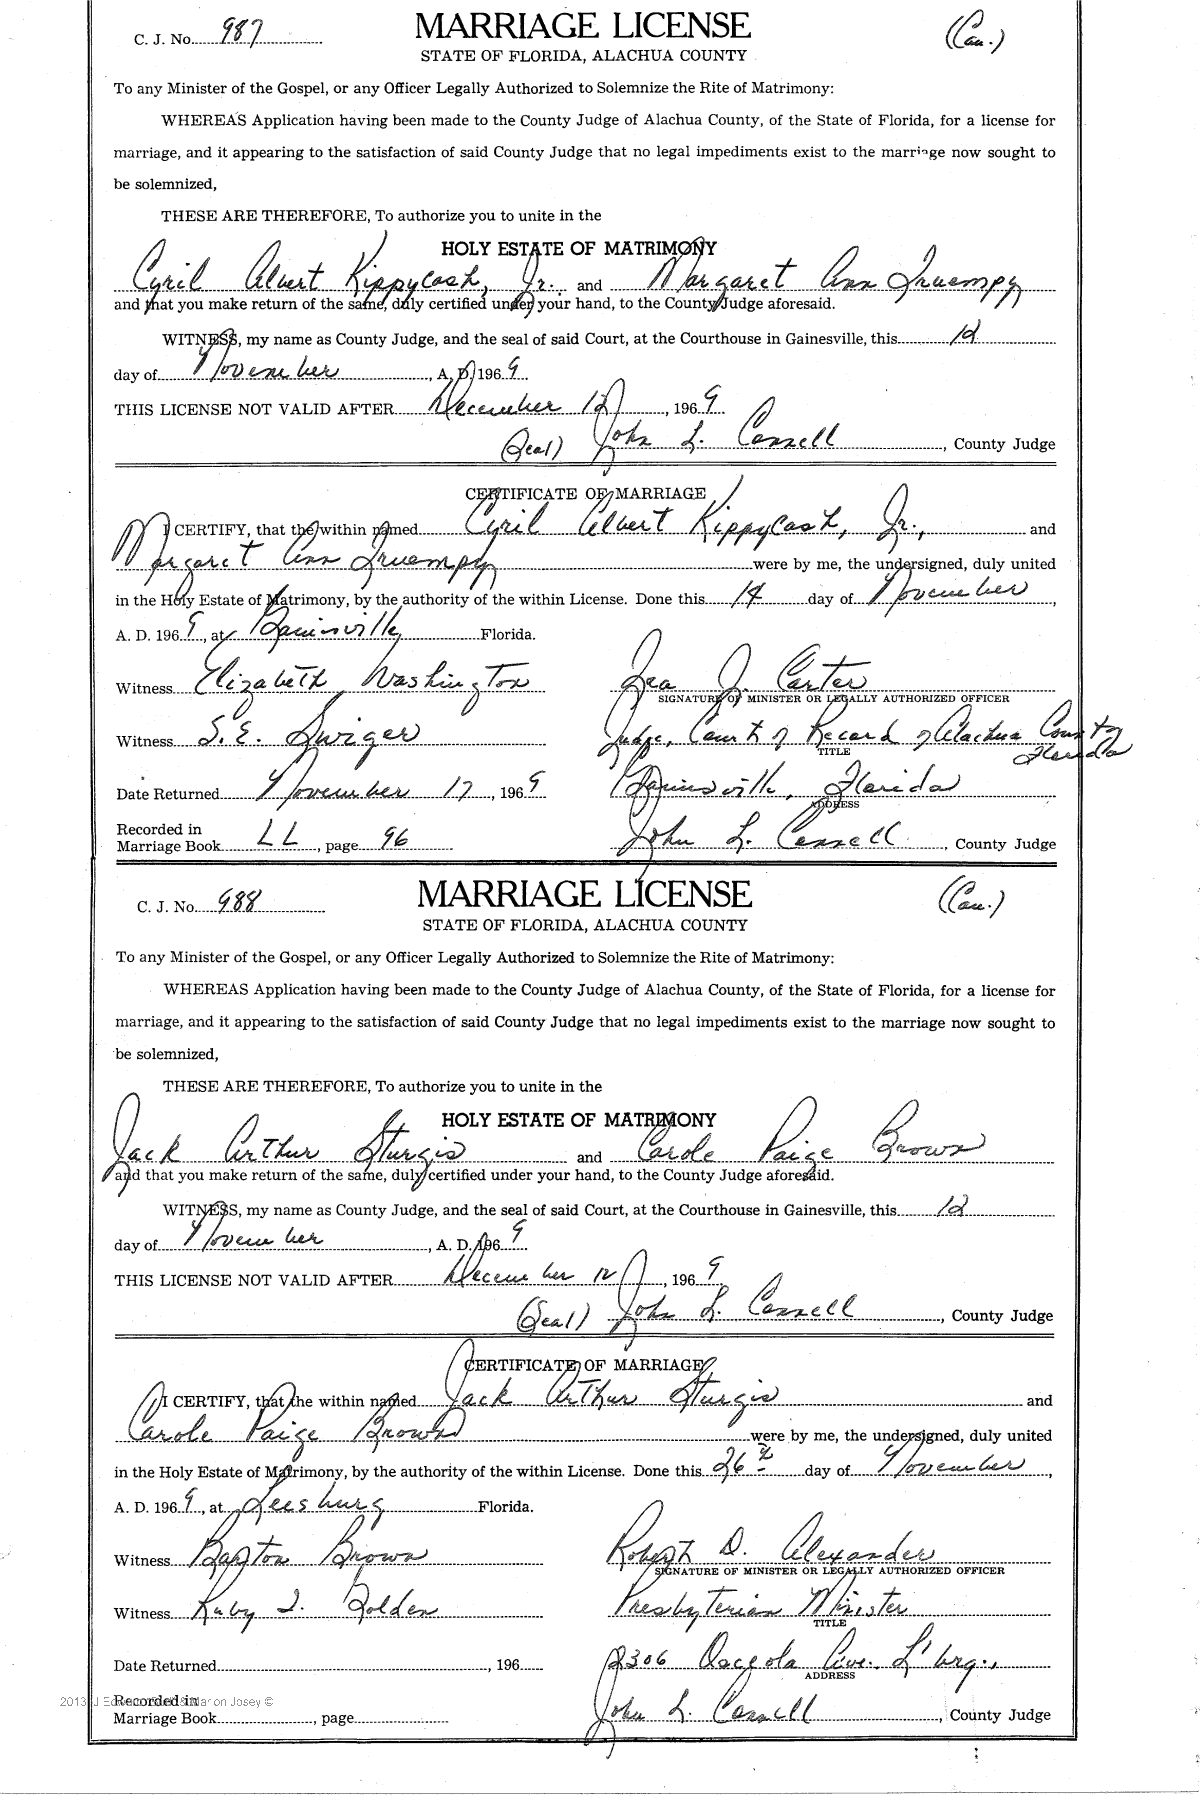 C. J. No. 987 MARRIAGE LICENSE (Cau.)
STATE OF FLORIDA, ALACHUA COUNTY
To any Minister of the Gospel, or any Officer Legally Authorized to Solemnize the Rite of Matrimony:
WHEREAS Application having been made to the County Judge of Alachua County, of the State of Florida, for a license for
marriage, and it appearing to the satisfaction of said County Judge that no legal impediments exist to the marriage now sought to
be solemnized,
THESE ARE THEREFORE, To authorize you to unite in the
HOLY ESTATE OF MATRIMONY
Cyril Albert Kippycash, Jr. and Margaret Ann Truempy
and that you make return of the same, duly certified under your hand, to the County Judge aforesaid.
WITNESS, my name as County Judge, and the seal of said Court, at the Courthouse in Gainesville, this 12
day of November, A. D. 1969
THIS LICENSE NOT VALID AFTER December 12, 1969
(Seal) John L. Connell, County Judge
CERTIFICATE OF MARRIAGE
I CERTIFY, that the within named Cyril Albert Kippycash, Jr., and
Margaret Ann Truempy were by me, the undersigned, duly united
in the Holy Estate of Matrimony, by the authority of the within License. Done this 14 day of November,
A. D. 1969, at Gainsville Florida.
Witness Elizabeth Washington Ira J. Carter
SIGNATURE OF MINISTER OR LEGALLY AUTHORIZED OFFICER
Witness S. E. Swiger Judge, Court of Record of Alachua County
Florida
TITLE
Date Returned November 17, 1969 Gainsville, Florida
ADDRESS
Recorded in
Marriage Book LL, page 96 John L. Connell, County Judge
C. J. No. 988 MARRIAGE LICENSE (Cau.)
STATE OF FLORIDA, ALACHUA COUNTY
To any Minister of the Gospel, or any Officer Legally Authorized to Solemnize the Rite of Matrimony:
WHEREAS Application having been made to the County Judge of Alachua County, of the State of Florida, for a license for
marriage, and it appearing to the satisfaction of said County Judge that no legal impediments exist to the marriage now sought to
be solemnized,
THESE ARE THEREFORE, To authorize you to unite in the
HOLY ESTATE OF MATRIMONY
Jack Arthur Sturgis and Carole Paige Brown
and that you make return of the same, duly certified under your hand, to the County Judge aforesaid.
WITNESS, my name as County Judge, and the seal of said Court, at the Courthouse in Gainesville, this 12
day of November, A. D. 1969
THIS LICENSE NOT VALID AFTER December 12, 1969
(Seal) John L. Connell, County Judge
CERTIFICATE OF MARRIAGE
I CERTIFY, that the within named Jack Arthur Sturgis and
Carole Paige Brown were by me, the undersigned, duly united
in the Holy Estate of Matrimony, by the authority of the within License. Done this 26th day of November,
A. D. 1969, at Leesburg Florida.
Witness Barton Brown Robert D. Alexander
SIGNATURE OF MINISTER OR LEGALLY AUTHORIZED OFFICER
Witness Ruby I. Golden Presbyterian Minister
TITLE
Date Returned , 196 2306 Osceola Ave. L'brg.,
ADDRESS
2013 J Ed on Josey ©
Recorded in
Marriage Book , page John L. Connell, County Judge